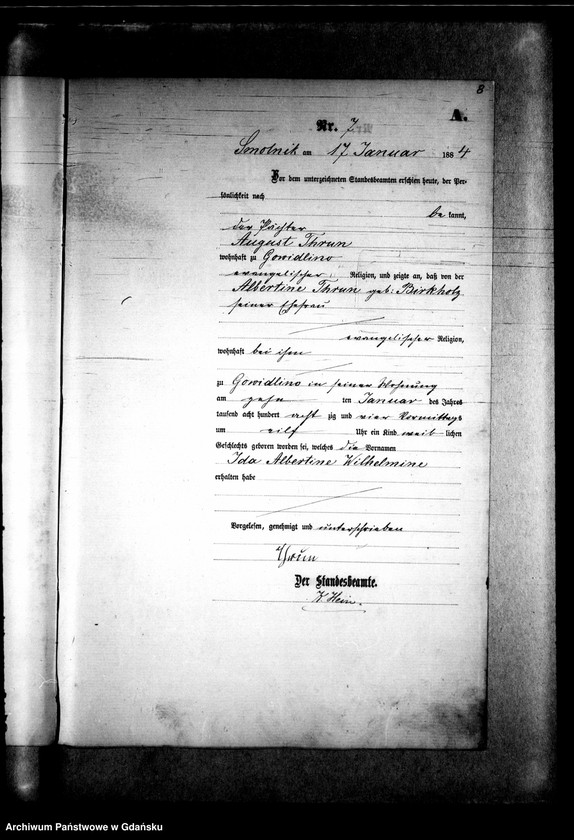 8
A.
Nr. 7
Smolnik am 17 Januar 1884
Vor dem unterzeichneten Standesbeamten erschien heute, der Per-
sönlichkeit nach
be kannt,
der Pächter
August Thrun
wohnhaft zu Gowidlino
evangelischer Religion, und zeigte an, daß von der
Albertine Thrun geb: Birkholz
seiner Ehefrau
evangelischer Religion,
wohnhaft bei ihm
zu Gowidlino in seiner Wohnung
am zehn ten Januar des Jahres
tausend acht hundert acht zig und vier Vormittags
um eilf Uhr ein Kind weib lichen
Geschlechts geboren worden sei, welches die Vornamen
Ida Albertine Wilhelmine
erhalten habe
Vorgelesen, genehmigt und unterschrieben
Thrun
Der Standesbeamte.
Hein.
Archiwum Państwowe w Gdańsku